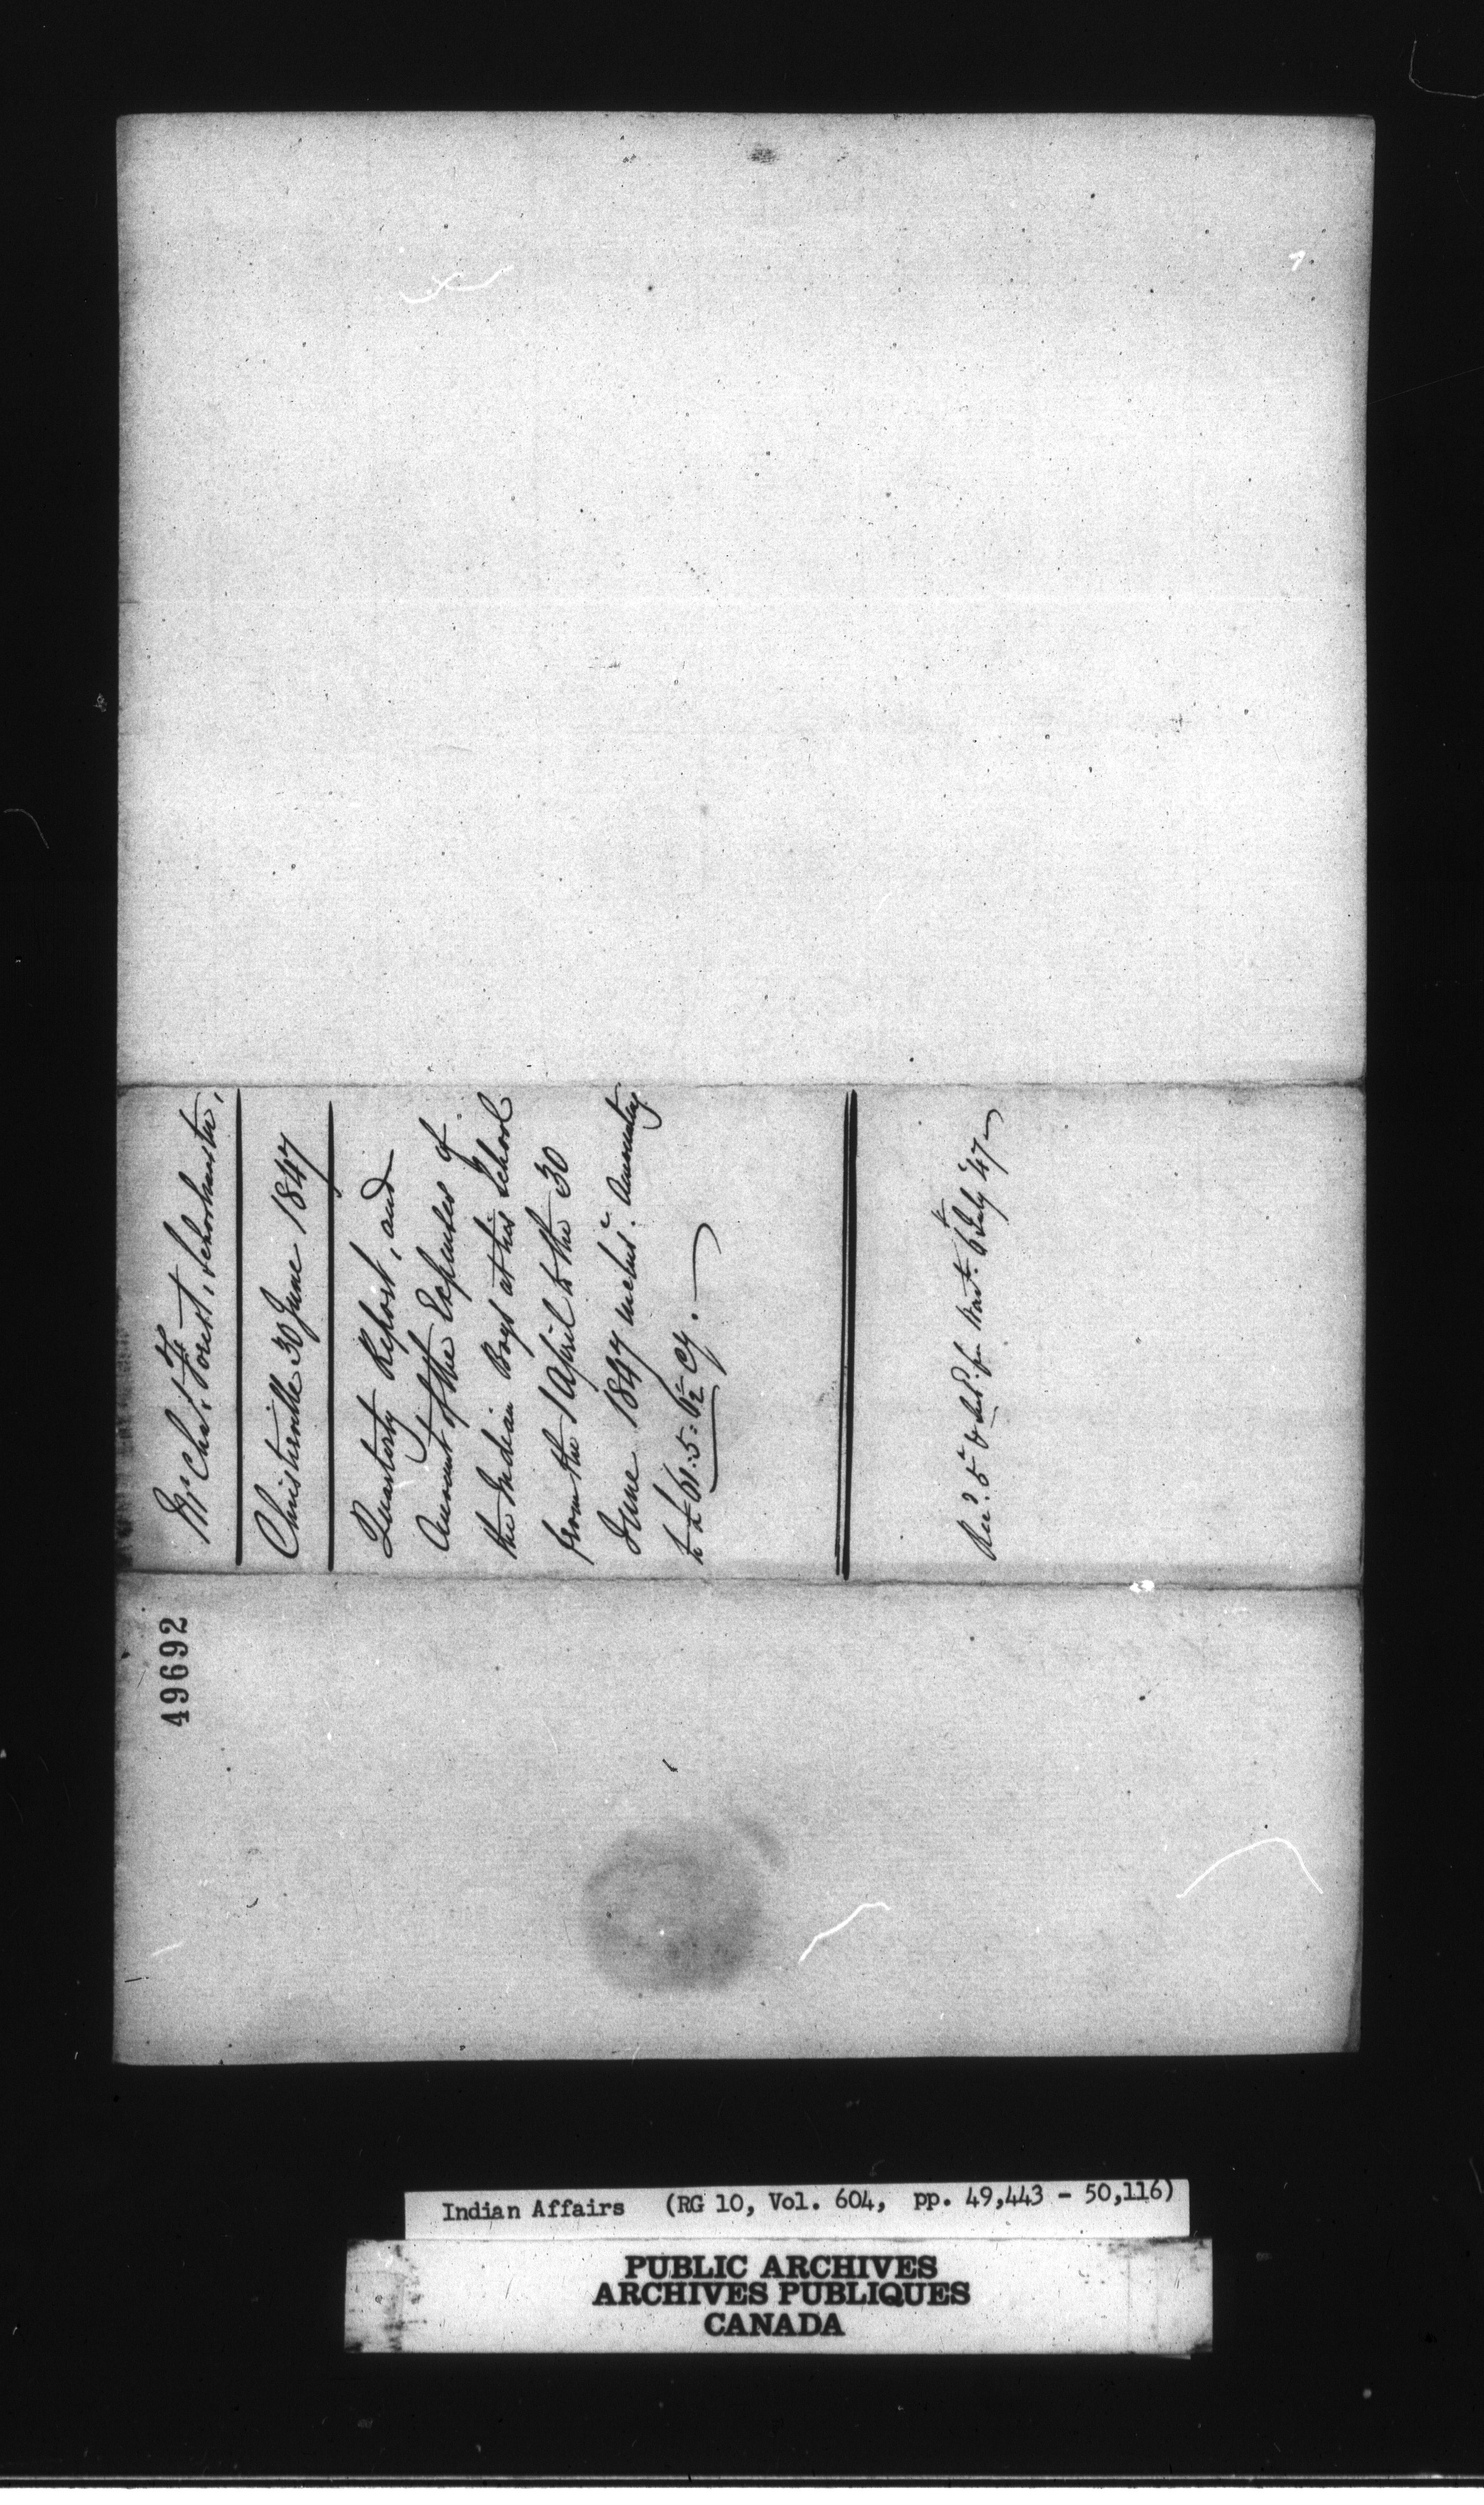 Mr Chas. Forest, Schoolmaster,
Christieville 30 June 1847
Quarterly Report, and
Amount of the Expenses of
the Indian Boys at his School
from the 1 April to the 30
June 1847 inclus.e Amounting
to £61:5:6½ Cy.
Rec.d 5th & 6 July '47
49692
Indian Affairs (RG 10, Vol. 604, pp. 49,443 - 50,116)
PUBLIC ARCHIVES
ARCHIVES PUBLIQUES
CANADA